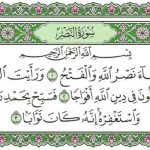 سُورَةُ النَّصْرِ
بِسْمِ ٱللَّهِ ٱلرَّحْمَٰنِ ٱلرَّحِيمِ
آءَ نَصْرُ ٱللَّهِ وَٱلْفَتْحُ ١ وَرَأَيْتَ
ونَ فِى دِينِ ٱللَّهِ أَفْوَاجًا ٢ فَسَبِّحْ بِحَمْدِ رَ
وَٱسْتَغْفِرْهُ إِنَّهُۥ كَانَ تَوَّابًۢا ٣